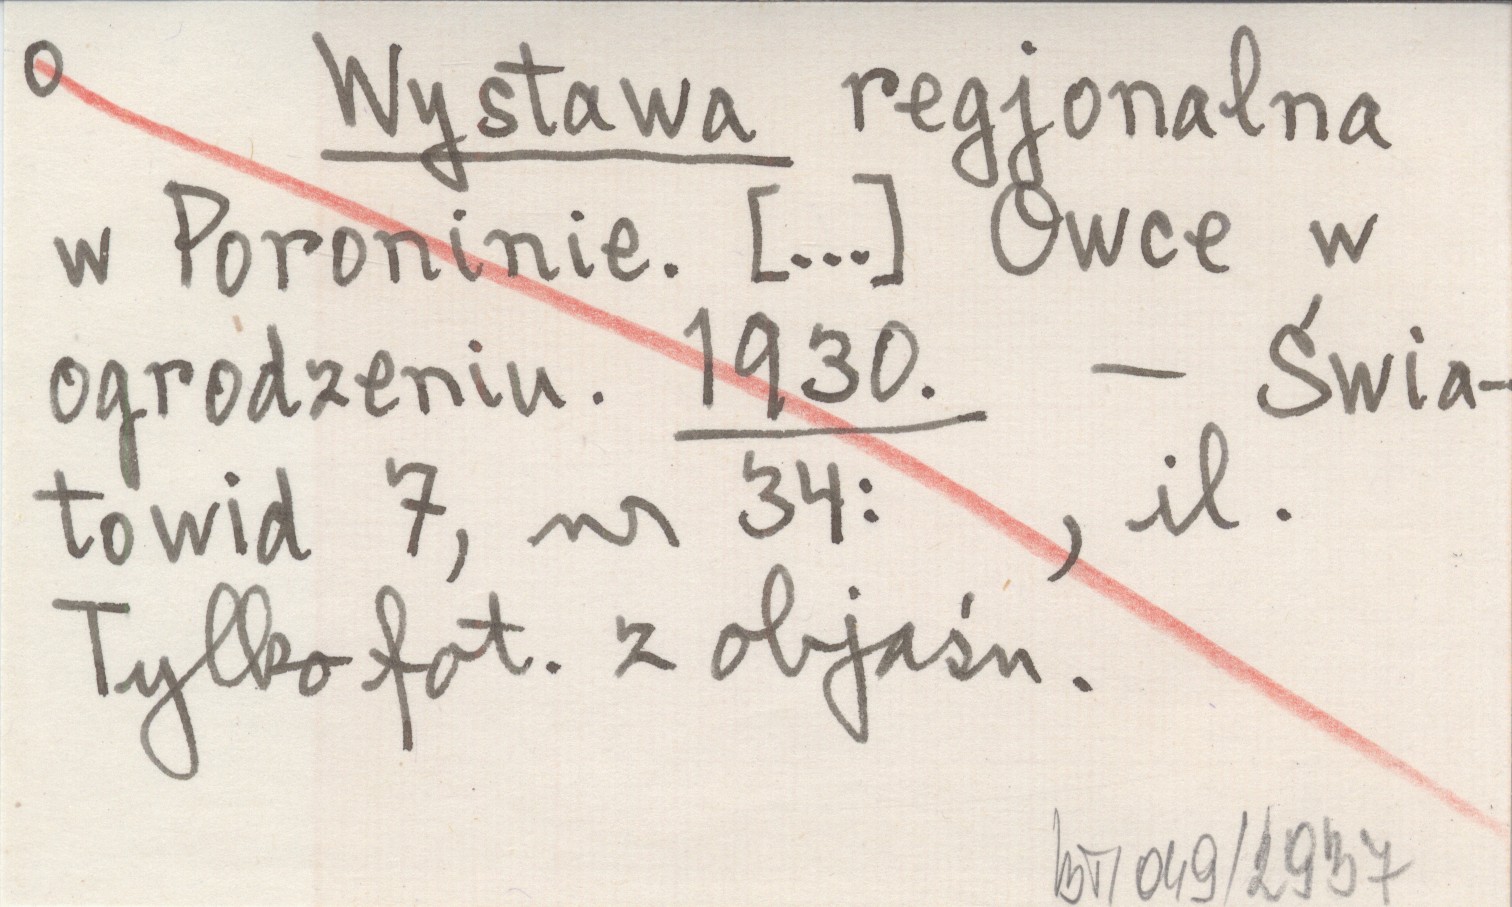 o Wystawa regjonalna
w Poroninie. [...] Owce w
ogrodzeniu. 1930. — Świa-
towid 7, nr 34: , il.
Tylko fot. z objaśn.
049/2937